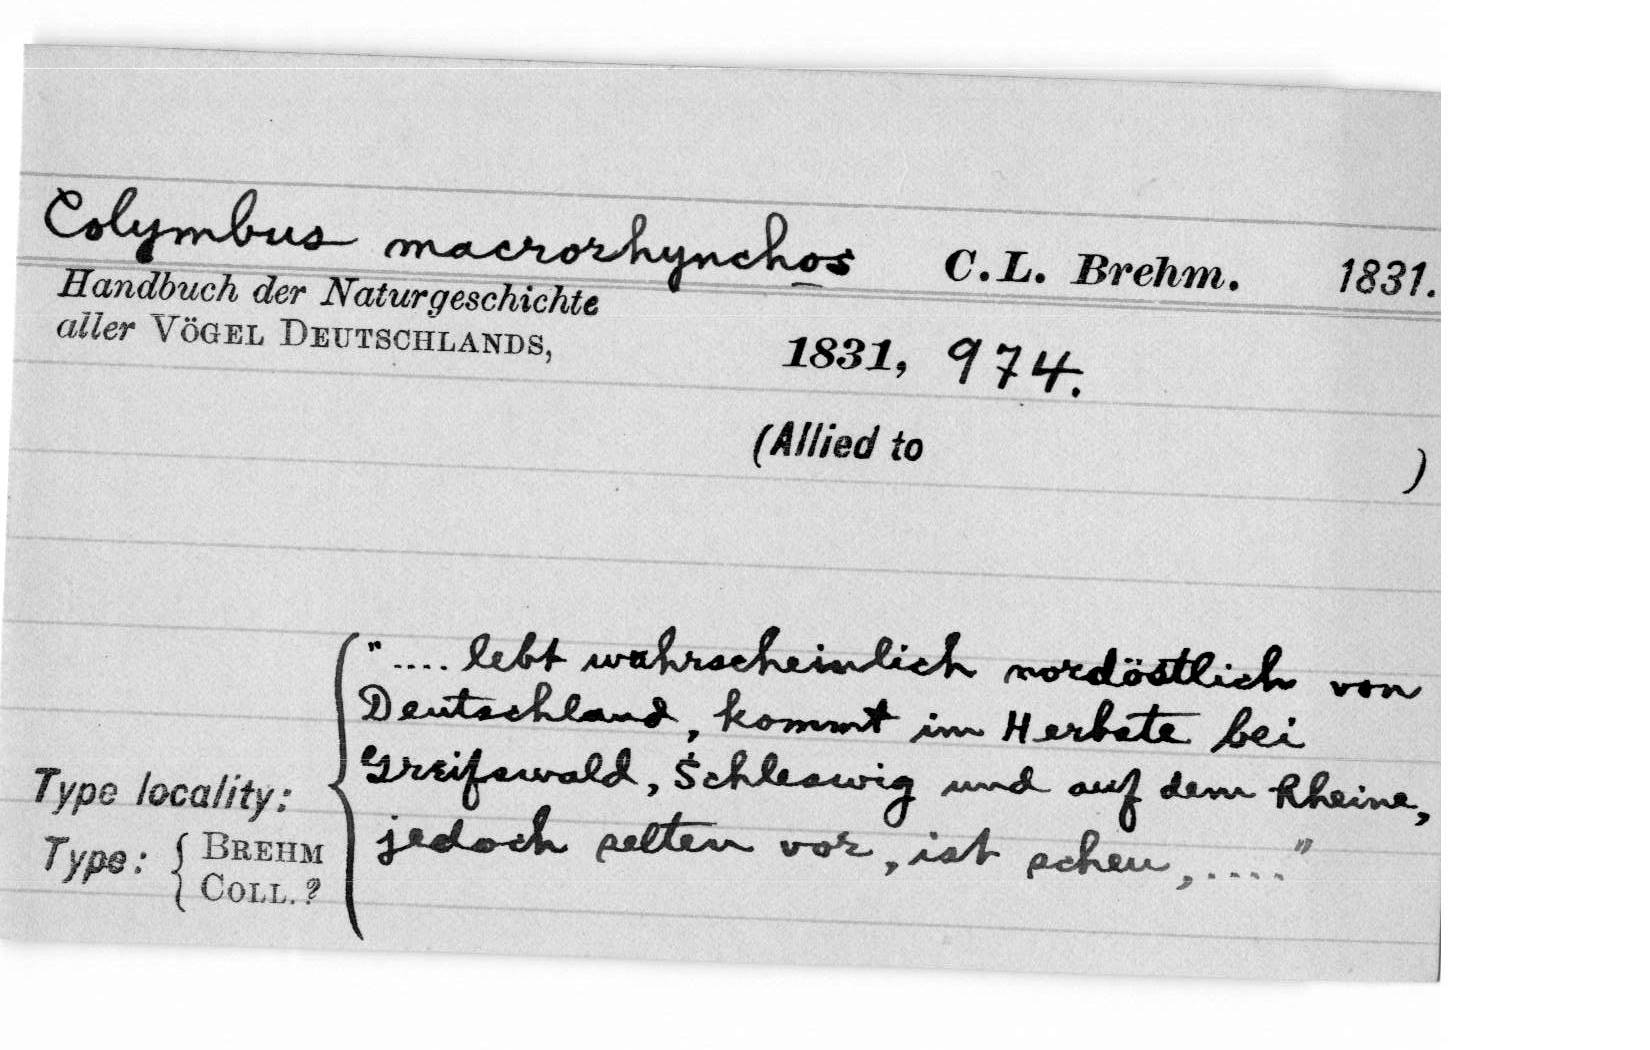 Colymbus macrorhynchos C.L. Brehm. 1831.
Handbuch der Naturgeschichte
aller VÖGEL DEUTSCHLANDS,
1831, 974.
(Allied to )
".... lebt wahrscheinlich nordöstlich von
Deutschland, kommt im Herbste bei
Greifswald, Schleswig und auf dem Rheine,
jedoch selten vor, ist scheu,...."
Type locality:
Type: { BREHM
COLL. ?